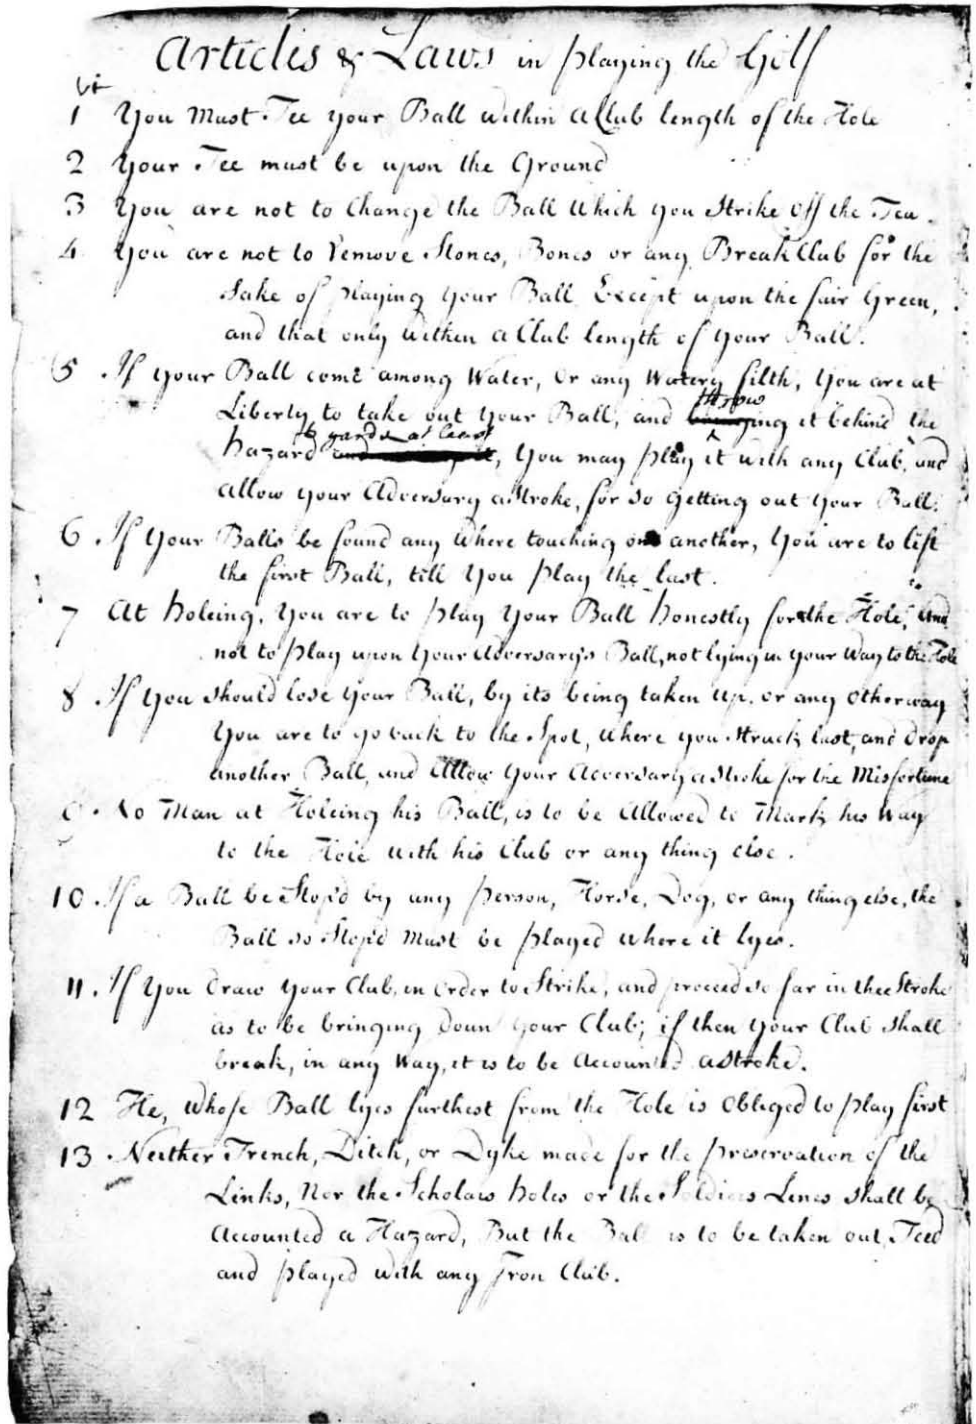 Articles & Laws in playing the Golf
1 You Must Tee your Ball within a Club length of the Hole
2 Your Tee must be upon the Ground
3 You are not to Change the Ball which you Strike off the Tee.
4 You are not to remove Stones, Bones or any Break Club for the
Sake of playing your Ball Except upon the fair Green,
and that only within a Club length of your Ball.
5. If your Ball come among Water, or any Watery filth, You are at
throw
Liberty to take out Your Ball, and bringing it behind the
6 yards at least
hazard, You may play it with any Club, and
allow your Adversary a Stroke, for so getting out your Ball.
6. If Your Balls be found any where touching one another, You are to lift
the first Ball, till You play the last.
7 At holeing, You are to play Your Ball honestly for the Hole, and
not to play upon Your Adversary's Ball, not lying in your Way to the Hole
8 If you should lose Your Ball, by its being taken up, or any other way
You are to go back to the Spot, where you struck last, and drop
another Ball, and Allow Your Adversary a stroke for the Misfortune
9. No Man at Holeing his Ball, is to be Allowed to Mark his Way
to the Hole with his Club or any thing else.
10. If a Ball be Stop'd by any person, Horse, Dog, or any thing else, the
Ball so Stop'd Must be played where it lyes.
11. If You draw Your Club, in Order to Strike, and proceed so far in thee Stroke
as to be bringing down Your Club; if then Your Club shall
break, in any Way, it is to be Accounted a stroke.
12 He, Whose Ball lyes furthest from the Hole is Obliged to play first
13. Neither Trench, Ditch, or Dyke made for the preservation of the
Links, Nor the Scholars holes or the Soldiers Lines shall be
Accounted a Hazard, But the Ball is to be taken out, Teed
and played with any Iron Club.